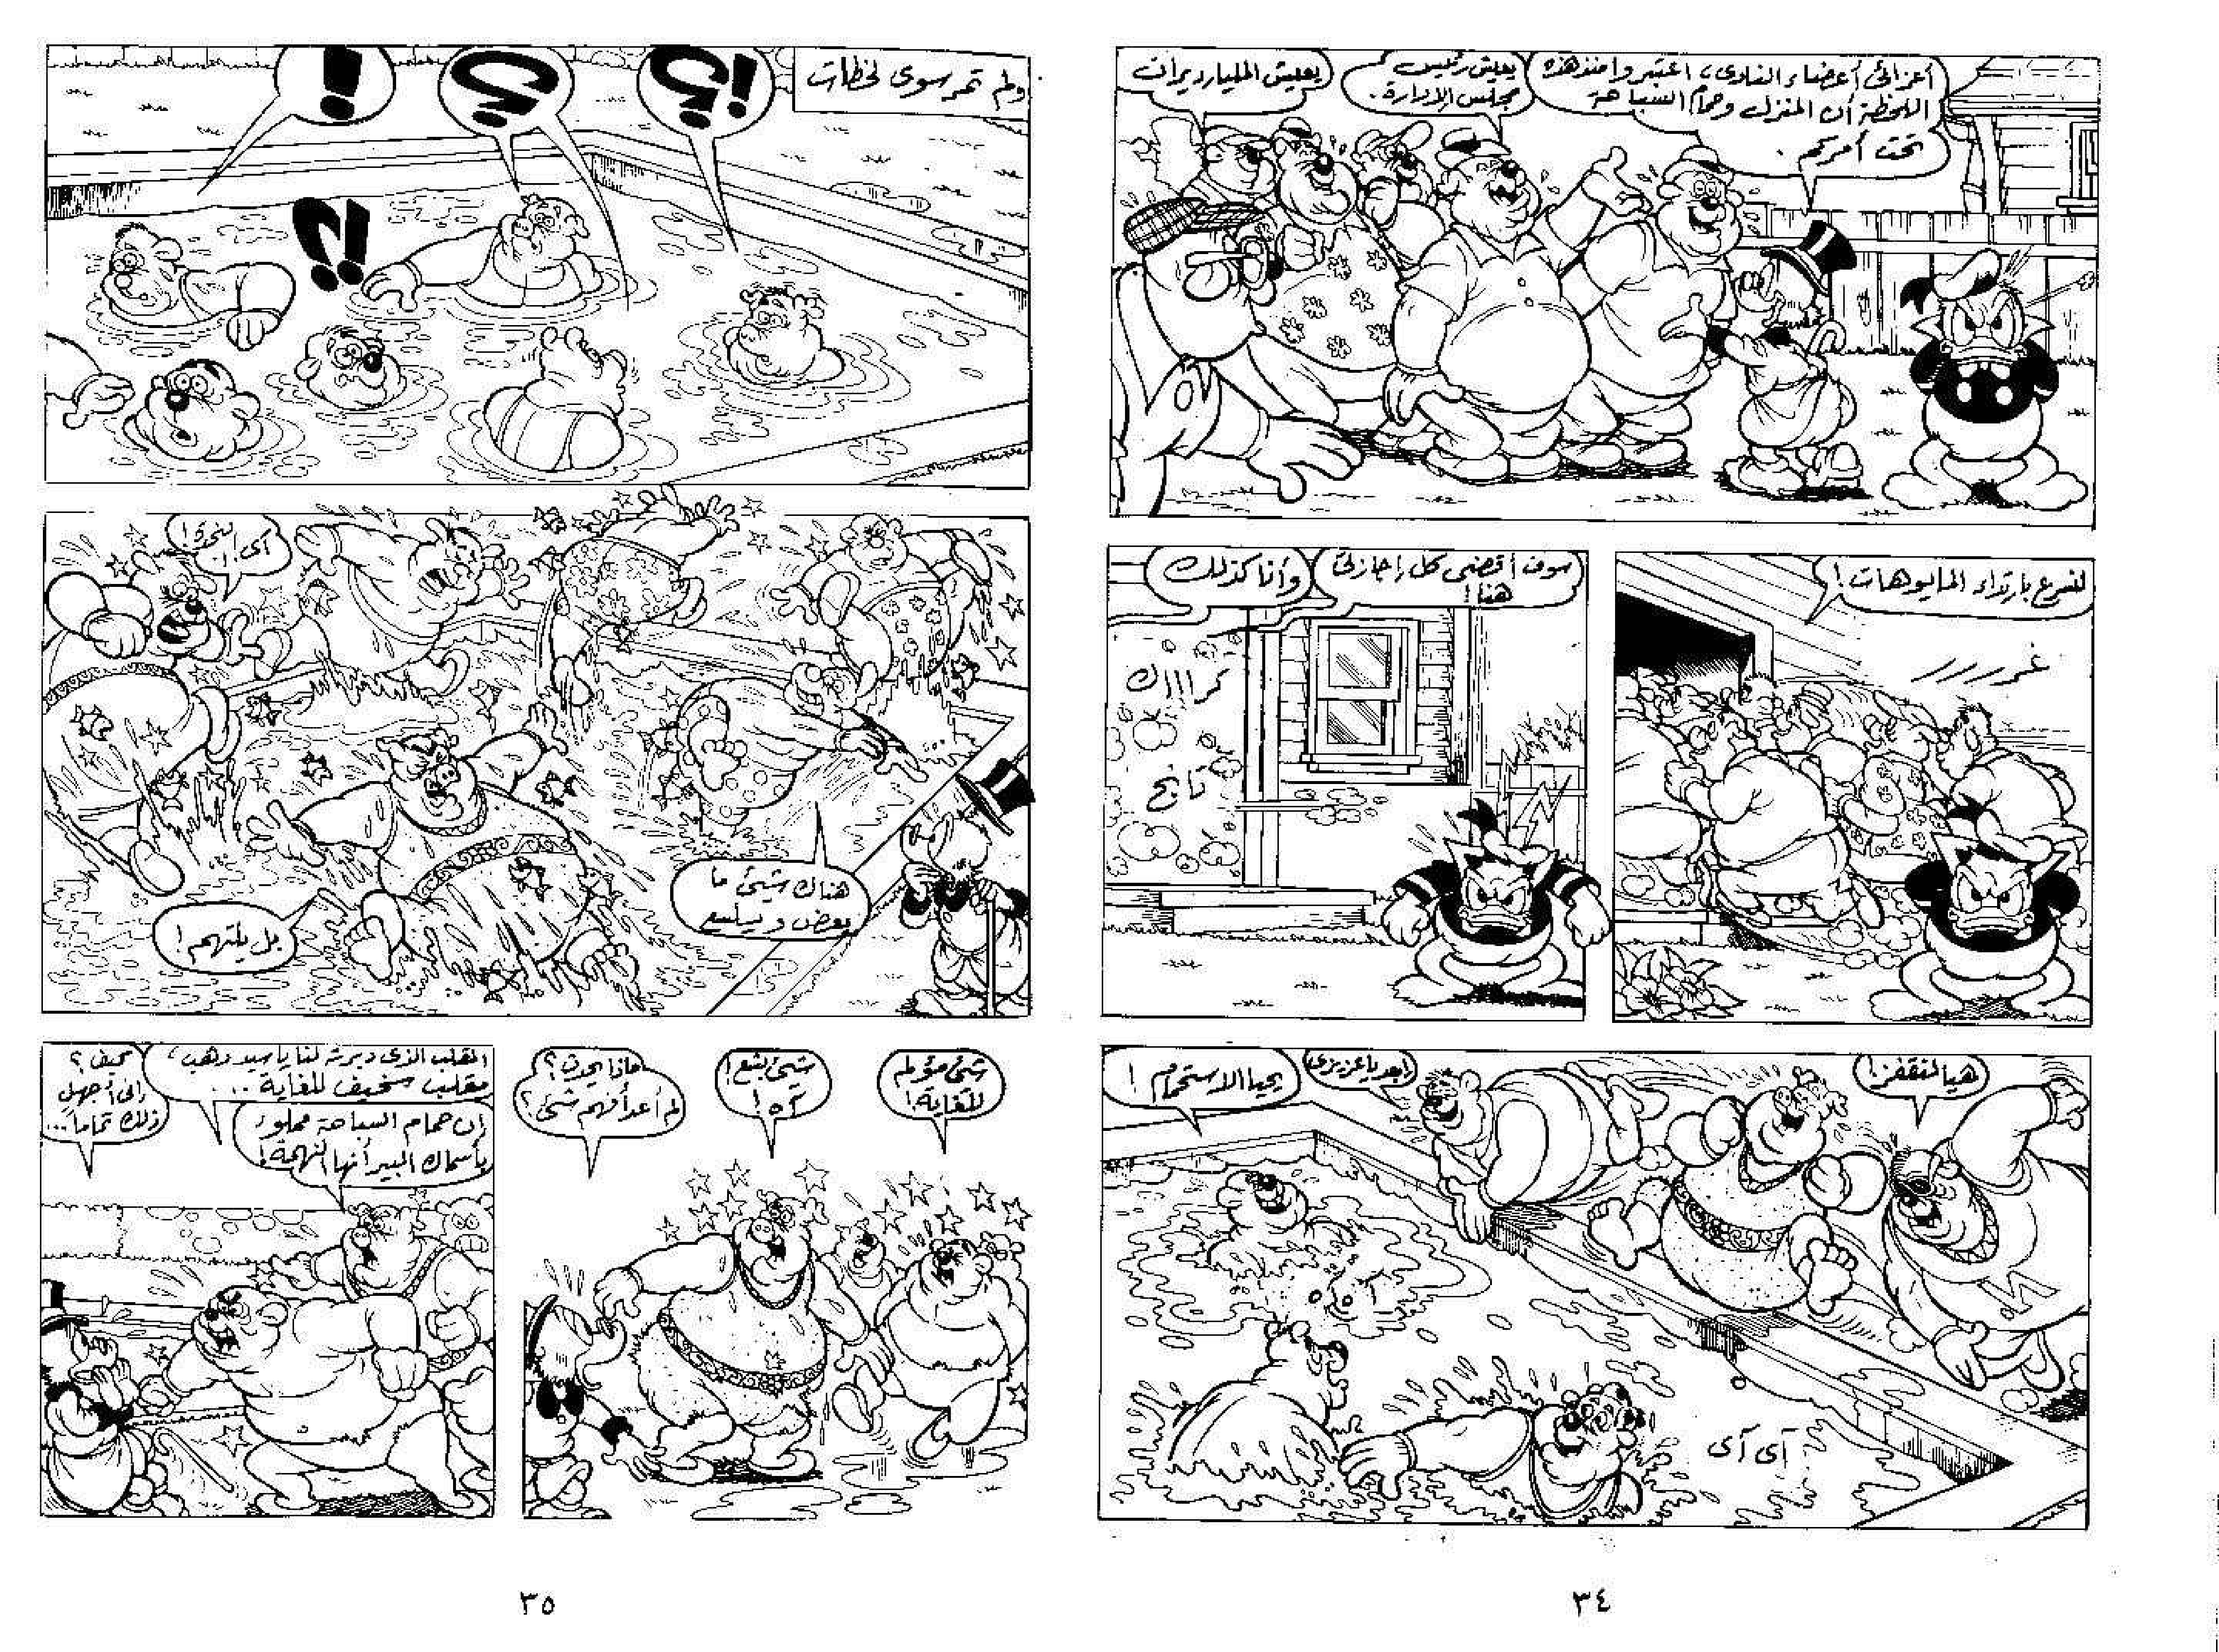 أعزائى أعضاء النادى، اعتبروا منذ هذه
اللحظة أن المنزل وحمام السباحة
تحت أمركم.
يعيش رئيس
مجلس الإدارة.
يعيش المليارديرات
لنسرع بارتداء المايوهات!
غررررر
سوف أقضى كل إجازتى
هنا!
وأنا كذلك
كراااك
تابخ
هيا لنقفز!
ابعد يا عزيزى
يحيا الاستحمام!
آى آى
٣٤
ولم تمر سوى لحظات
؟!
؟
!
؟!
آى!! نجدة!
هناك شيئ ما
يعض ويلسع
بل يلتهم!
شيئ مؤلم
للغاية!
شيئ بشع!
آه!
ماذا يحدث؟
لم أعد أفهم شيئ؟
المقلب الذى دبرته لنا يا سيد دهب،
مقلب سخيف للغاية...
إن حمام السباحة مملوء
بأسماك البيرانها النهمة!
كيف؟
إنى أجهل
ذلك تماما...
٣٥